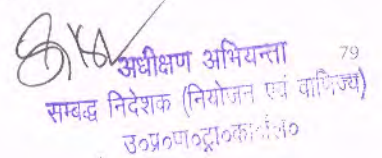 अधीक्षण अभियन्ता 79
सम्बद्ध निदेशक (नियोजन एवं वाणिज्य)
उ०प्र०पा०ट्रा०का०लि०